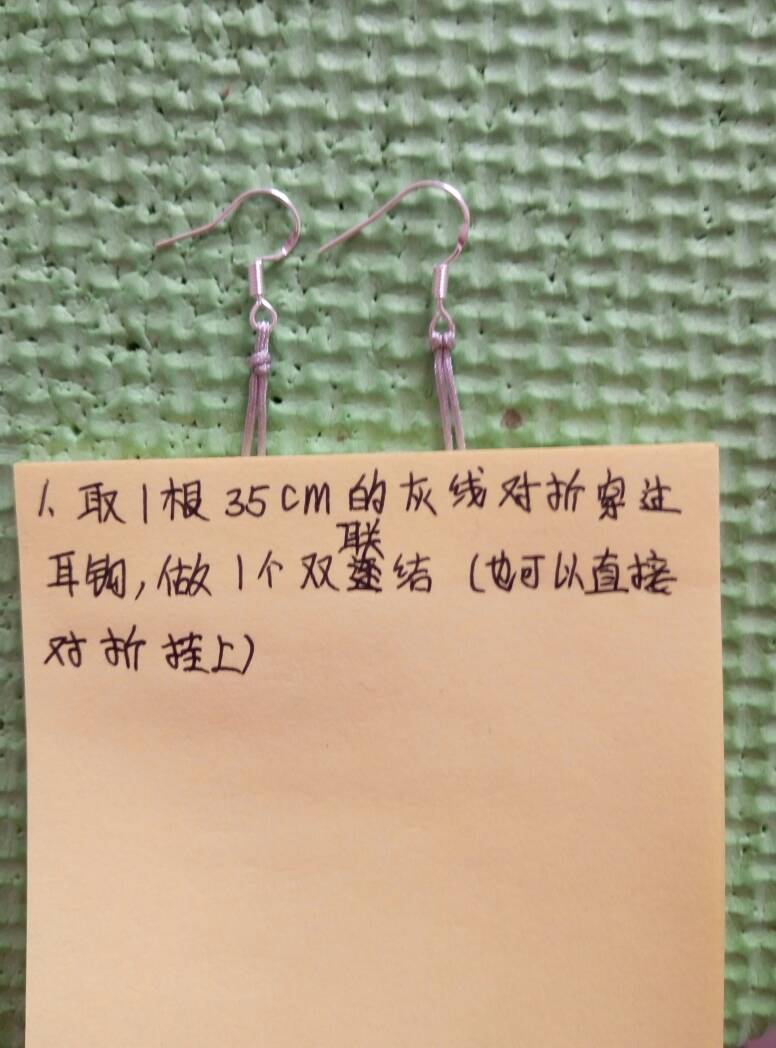 1、取1根35cm的灰线对折穿过
耳钩,做1个双联结(也可以直接
对折挂上)